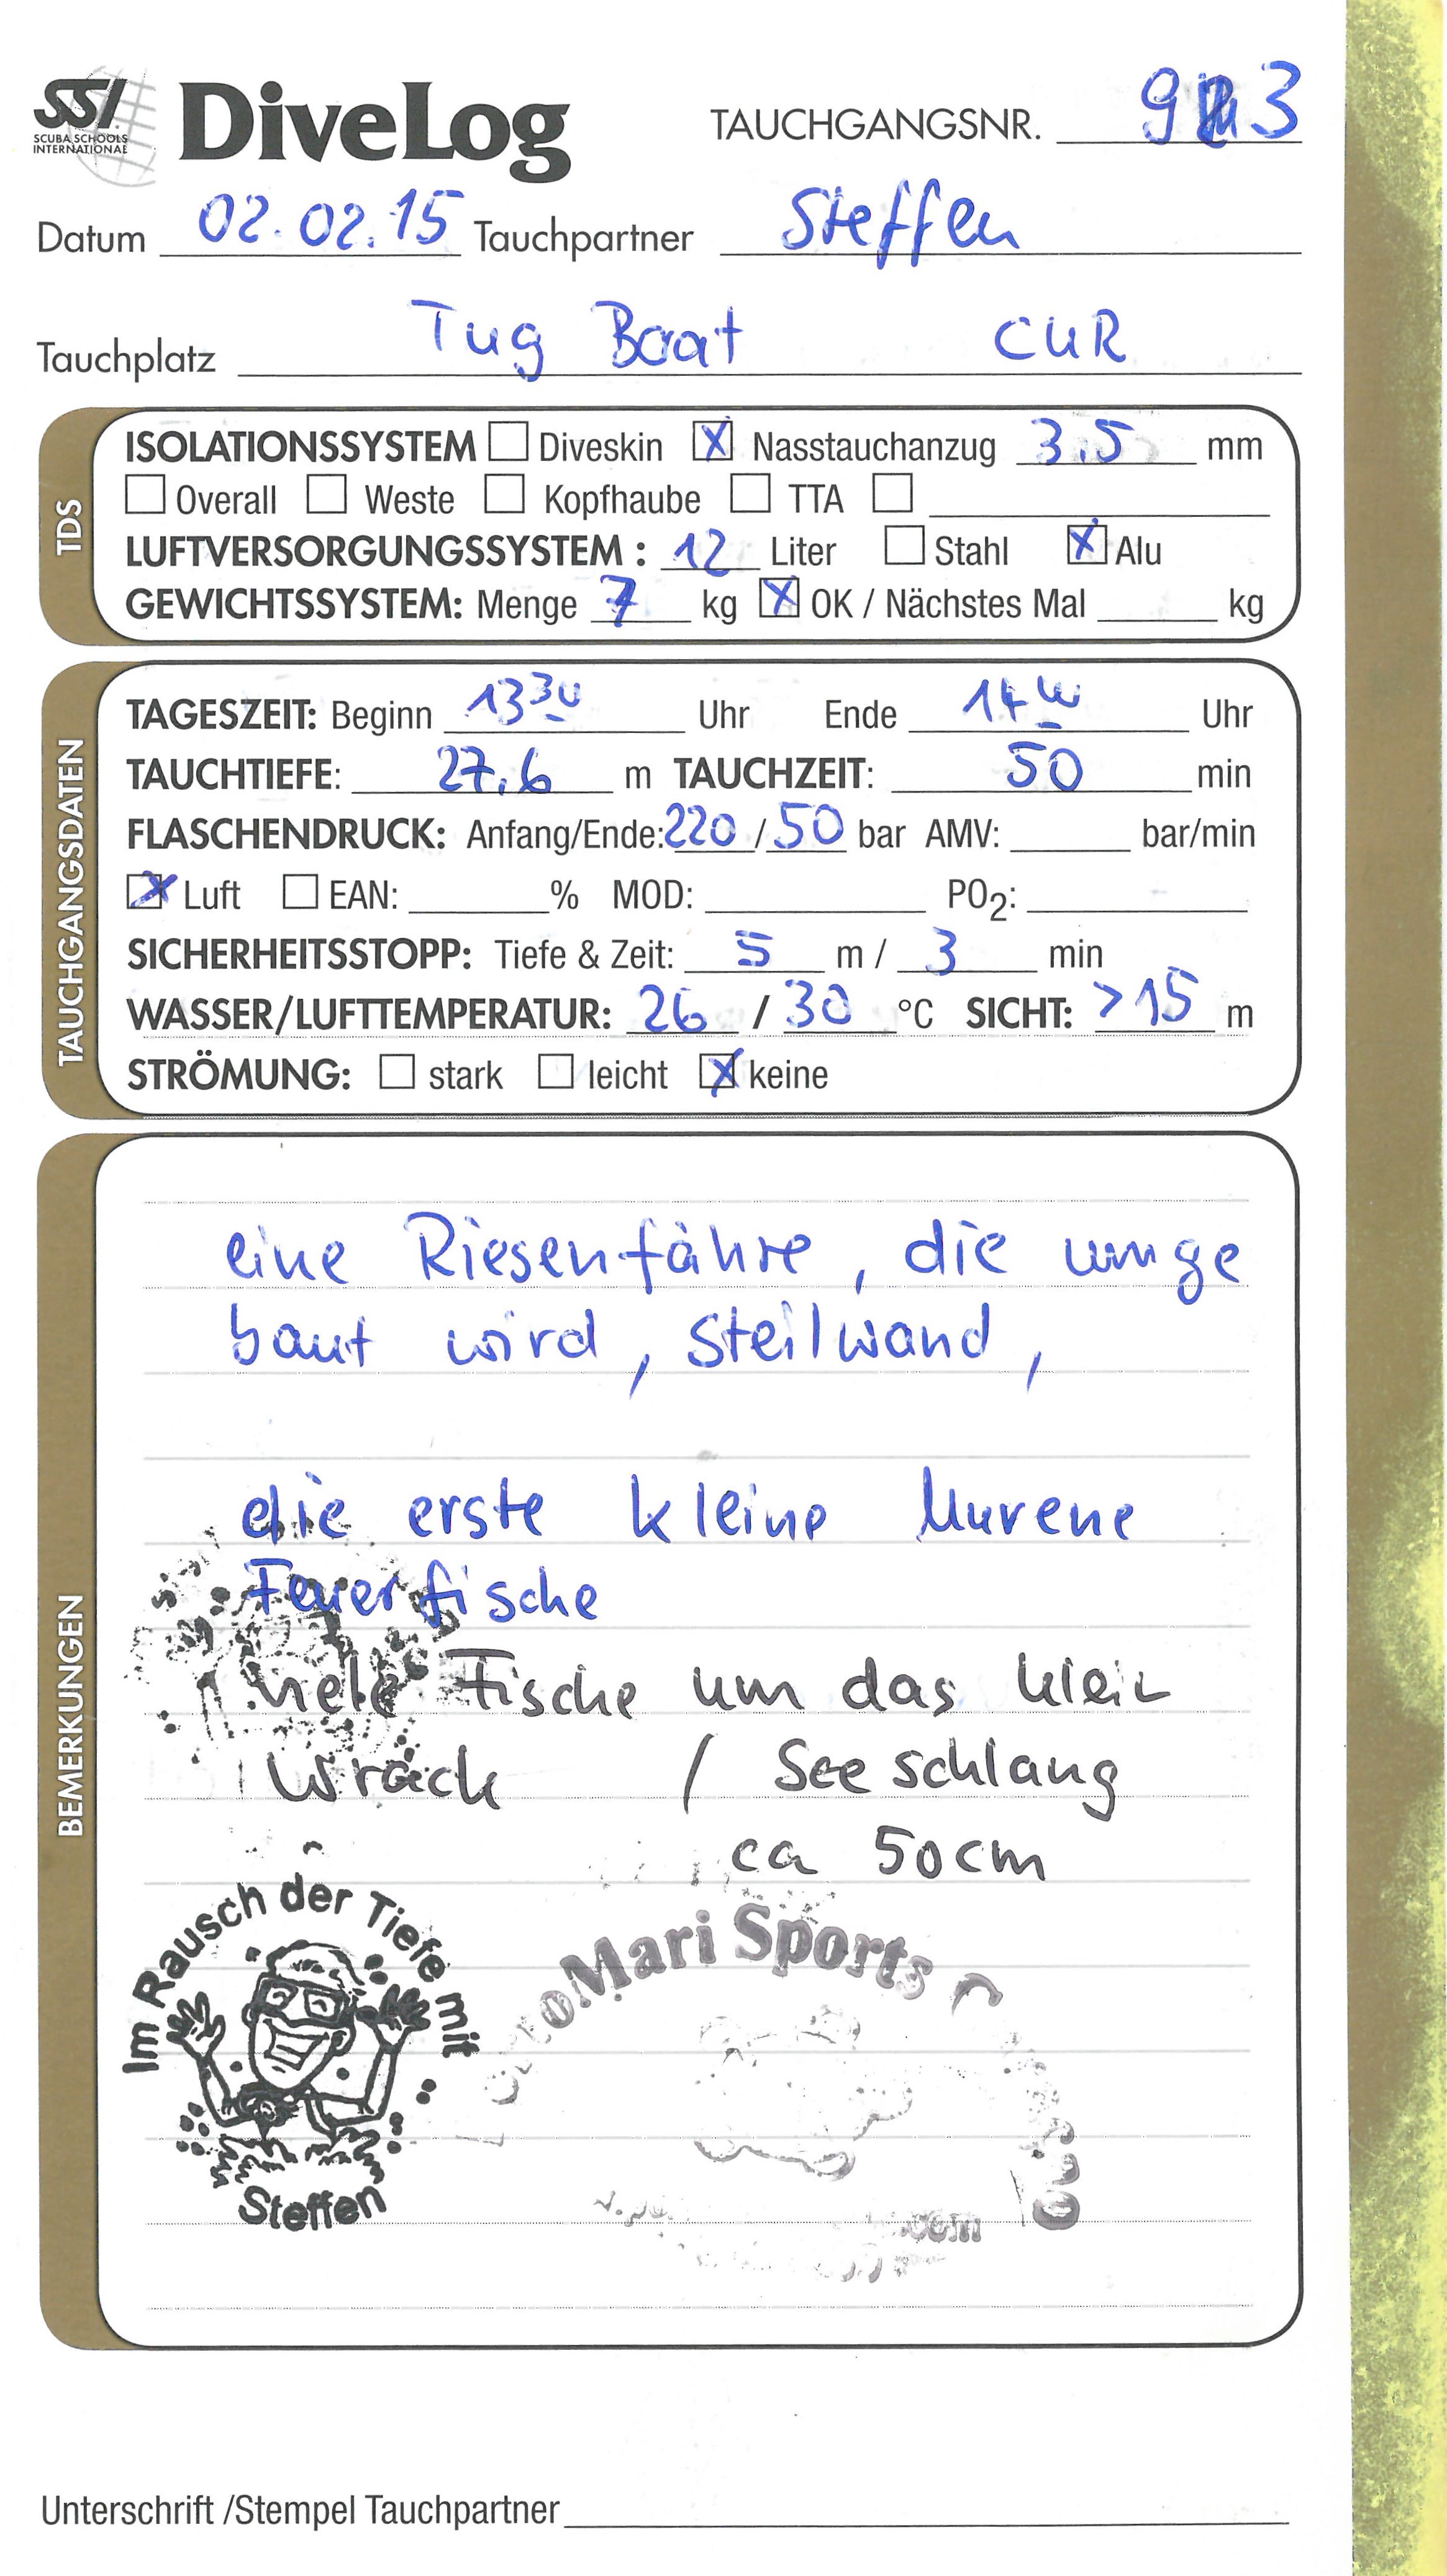 SSI
SCUBA SCHOOLS
INTERNATIONAL
DiveLog
TAUCHGANGSNR. 93
Datum 02.02.15 Tauchpartner Steffen
Tauchplatz Tug Boat CUR
TDS
ISOLATIONSSYSTEM ☐ Diveskin ☒ Nasstauchanzug 3.5 mm
☐ Overall ☐ Weste ☐ Kopfhaube ☐ TTA ☐
LUFTVERSORGUNGSSYSTEM : 12 Liter ☐ Stahl ☒ Alu
GEWICHTSSYSTEM: Menge 7 kg ☒ OK / Nächstes Mal kg
TAUCHGANGSDATEN
TAGESZEIT: Beginn 13 30 Uhr Ende Uhr
TAUCHTIEFE: 27.6 m TAUCHZEIT: 50 min
FLASCHENDRUCK: Anfang/Ende: 220 / 50 bar AMV: bar/min
☒ Luft ☐ EAN: % MOD: PO2:
SICHERHEITSSTOPP: Tiefe & Zeit: 5 m / 3 min
WASSER/LUFTTEMPERATUR: 26 / 30 °C SICHT: >15 m
STRÖMUNG: ☐ stark ☐ leicht ☒ keine
BEMERKUNGEN
eine Riesenfähre, die umge
baut wird, Steilwand,
die erste kleine Murene
Feuerfische
viele Fische um das klein
Wrack / Seeschlang
ca 50cm
Im Rausch der Tiefe mit
Steffen
Mari Sports
.com
Unterschrift /Stempel Tauchpartner